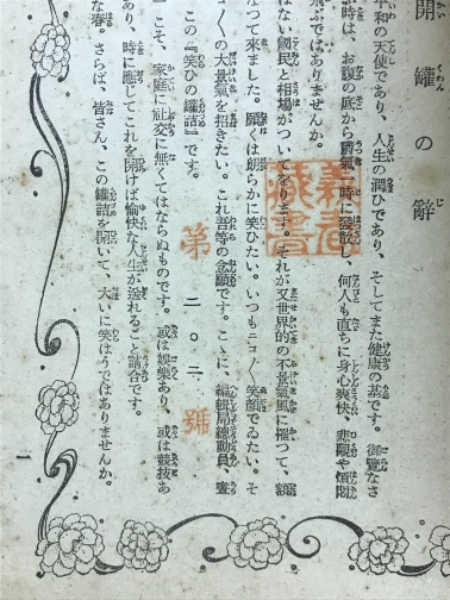 開罐の辭
平和の天使であり、人生の潤ひであり、そしてまた健康の基です。御覽なさ
時は、お腹の底から鬱氣一時に發散し、何人も直ちに身心爽快、悲觀や煩悶
飛ぶではありませんか。
はない國民と相場がついてをります。それが又世界的の不景氣風に罹つて、額
なつて來ました。願くは朗らかに笑ひたい。いつもニコ〳〵笑顏でゐたい。そ
〳〵の大景氣を招きたい。これ吾等の念願です。こゝに、編輯局總動員、
この『笑ひの罐詰』です。
こそ、家庭に社交に無くてはならぬものです。或は娛樂あり、或は競技あ
あり、時に應じてこれを開けば愉快な人生が送れること請合です。
な春。さらば、皆さん、この罐詰を開いて、大いに笑はうではありませんか。
藏書
第二〇二號
一